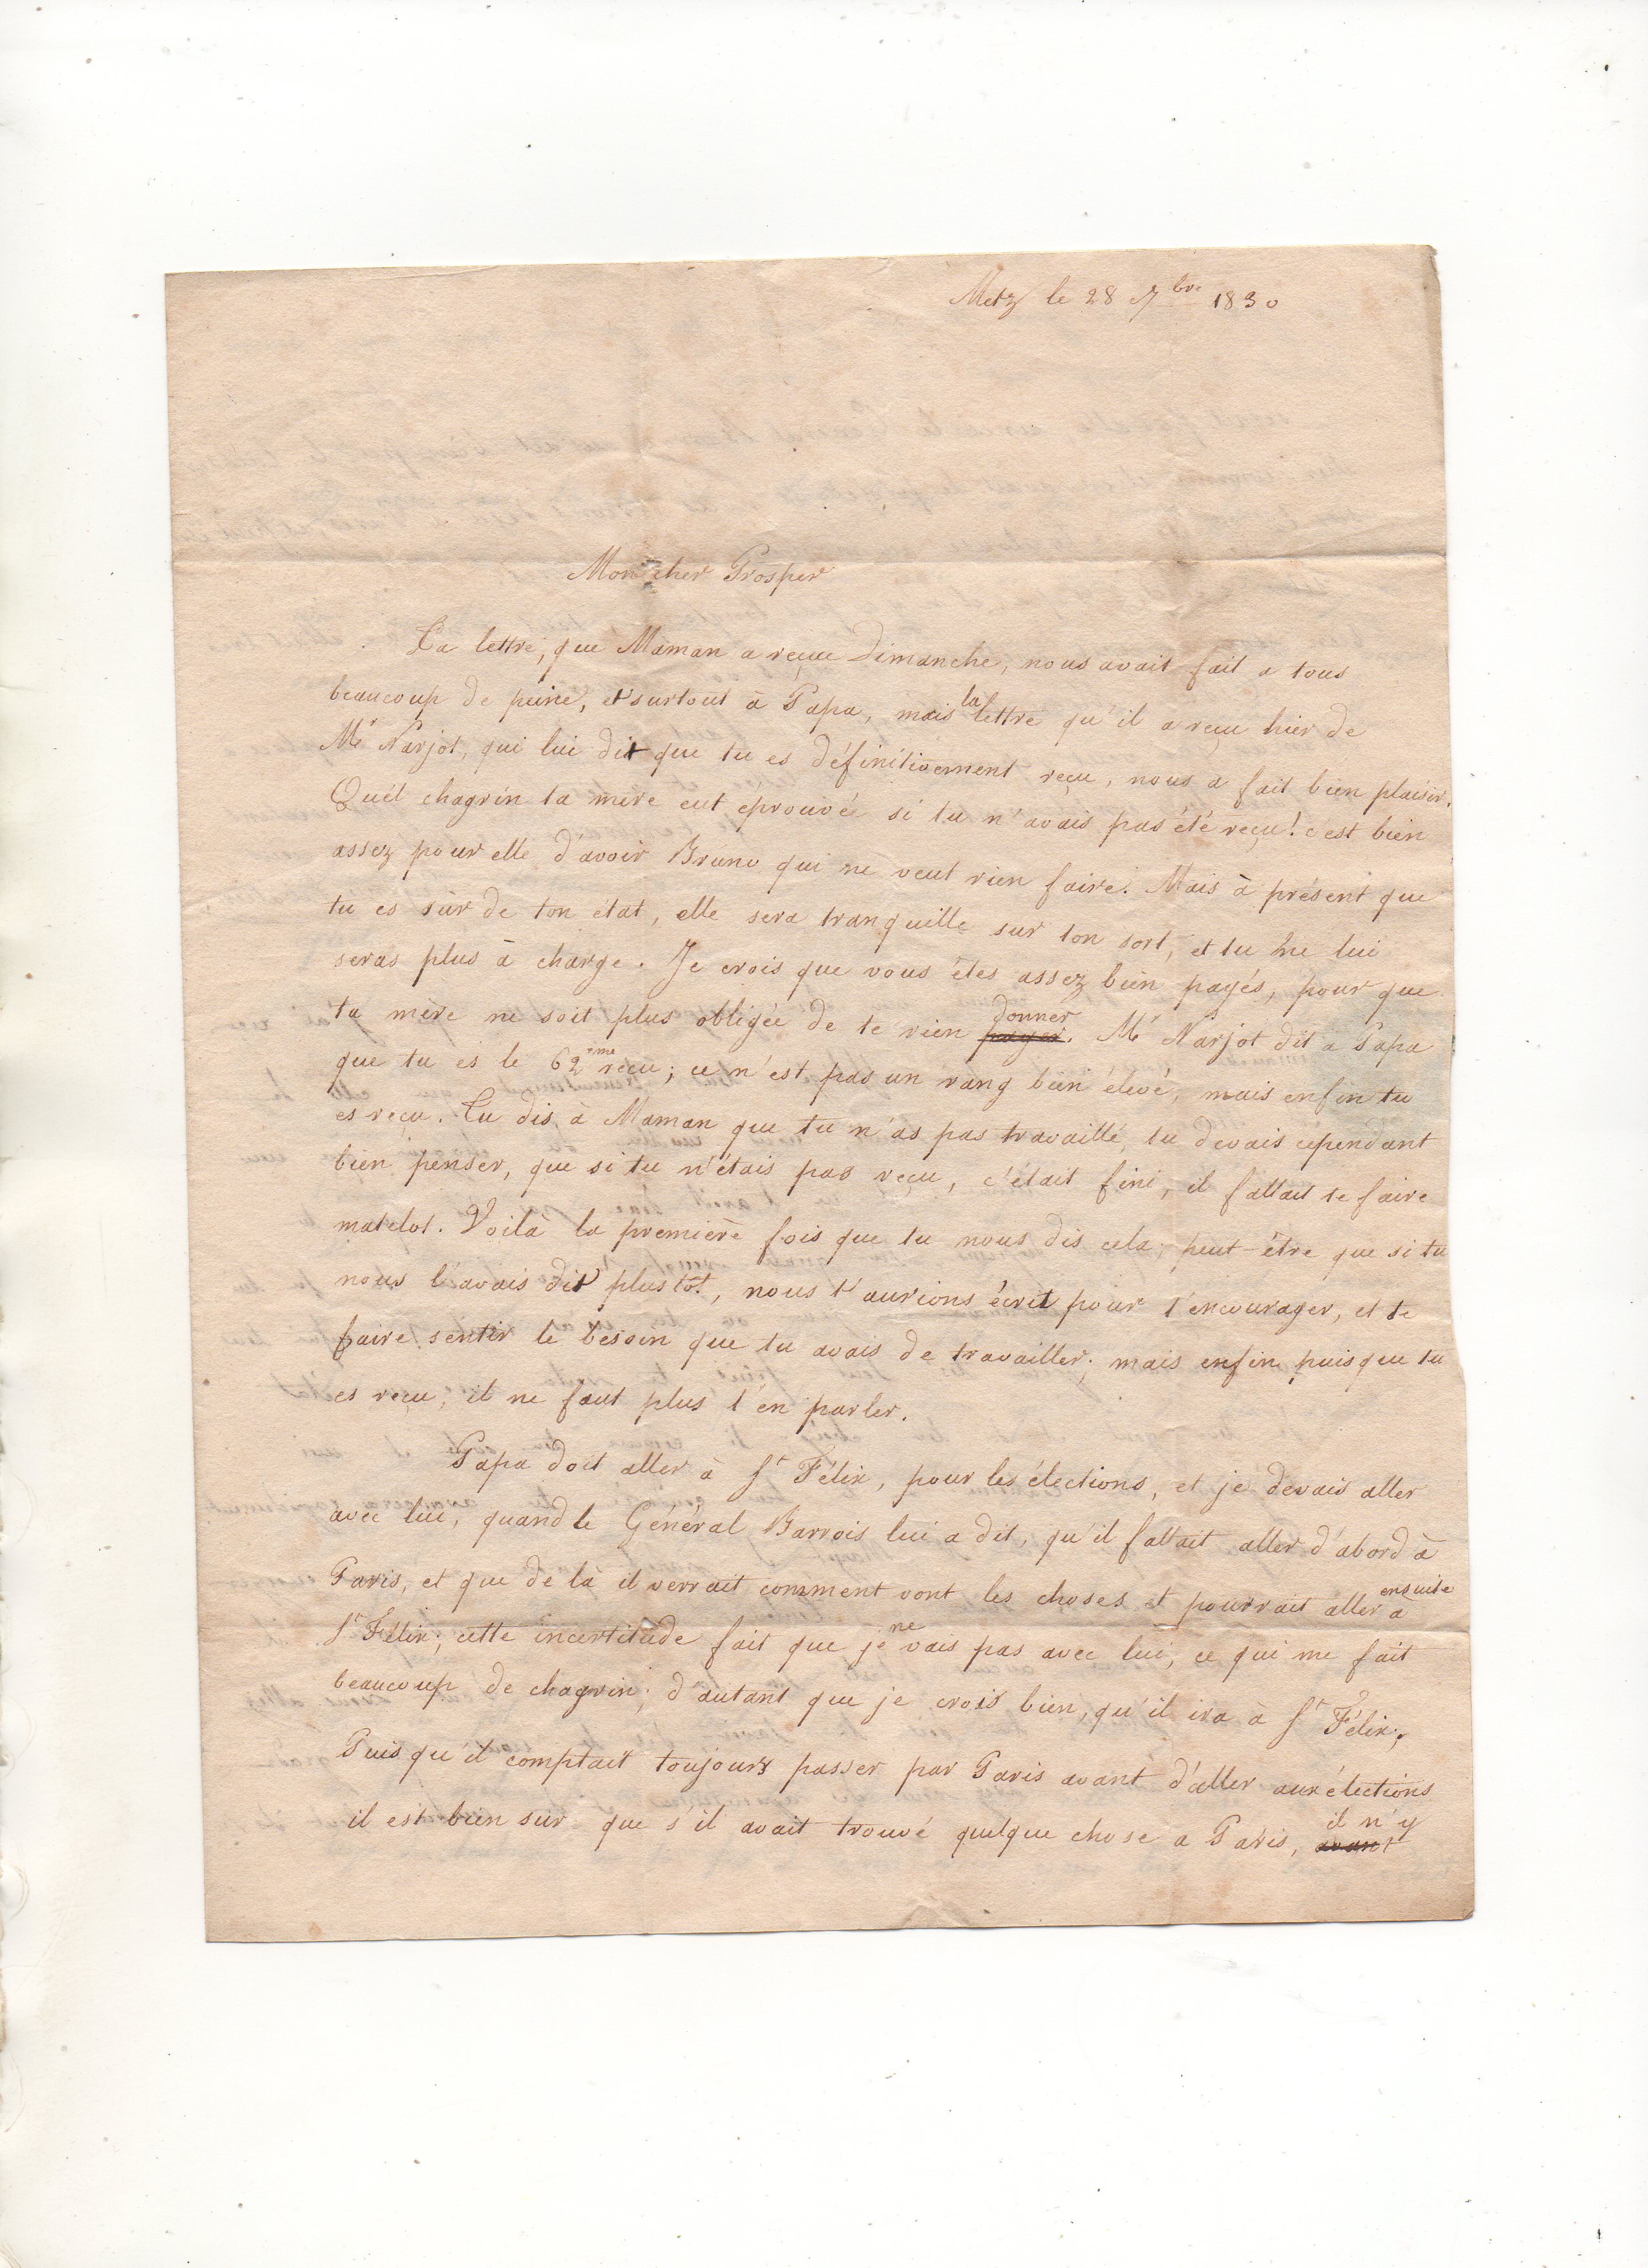 Metz le 28 7bre 1830
Mon cher Prosper
La lettre, que Maman a reçue Dimanche, nous avait fait a tous
beaucoup de peine, et surtout à Papa, mais la lettre qu'il a reçu hier de
Mr Narjot, qui lui dit que tu es définitivement reçu, nous a fait bien plaisir.
Quel chagrin ta mère eut éprouvé si tu n'avais pas été reçu! c'est bien
assez pour elle d'avoir Bruno qui ne veut rien faire. Mais à présent que
tu es sûr de ton état, elle sera tranquille sur ton sort, et tu ne lui
seras plus à charge. Je crois que vous êtes assez bien payés, pour que
ta mère ne soit plus obligée de te rien payer donner. Mr Narjot dit a Papa
que tu es le 62eme reçu; ce n'est pas un rang bien élevé, mais enfin tu
es reçu. Tu dis à Maman que tu n'as pas travaillé, tu devais cependant
bien penser, que si tu n'étais pas reçu, c'était fini, il fallait te faire
matelot. Voilà la première fois que tu nous dis cela, peut-être que si tu
nous l'avais dit plustôt, nous t'aurions écrit pour t'encourager, et te
faire sentir le besoin que tu avais de travailler; mais enfin puisque tu
es reçu, il ne faut plus t'en parler.
Papa doit aller à St Félix, pour les élections, et je devais aller
avec lui, quand le Général Barrois lui a dit, qu'il fallait aller d'abord à
Paris, et que de là il verrait comment vont les choses et pourrait aller ensuite a
St Félix; cette incertitude fait que je ne vais pas avec lui, ce qui me fait
beaucoup de chagrin; d'autant que je crois bien, qu'il ira à St Félix;
Puis qu'il comptait toujours passer par Paris avant d'aller aux élections
il est bien sur que s'il avait trouvé quelque chose a Paris, avant il n'y